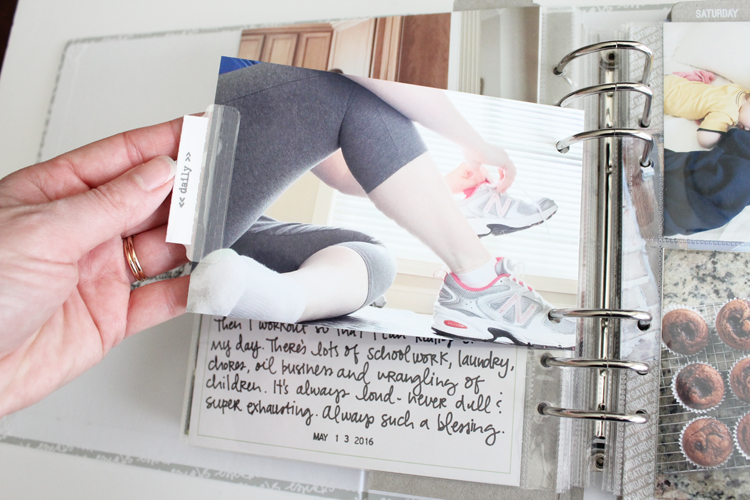 SATURDAY
<< daily >>
Then I workout so that I can really
my day. There's lots of schoolwork, laundry,
chores, oil business and wrangling of
children. It's always loud - never dull &
super exhausting. Always such a blessing.
MAY 13 2016